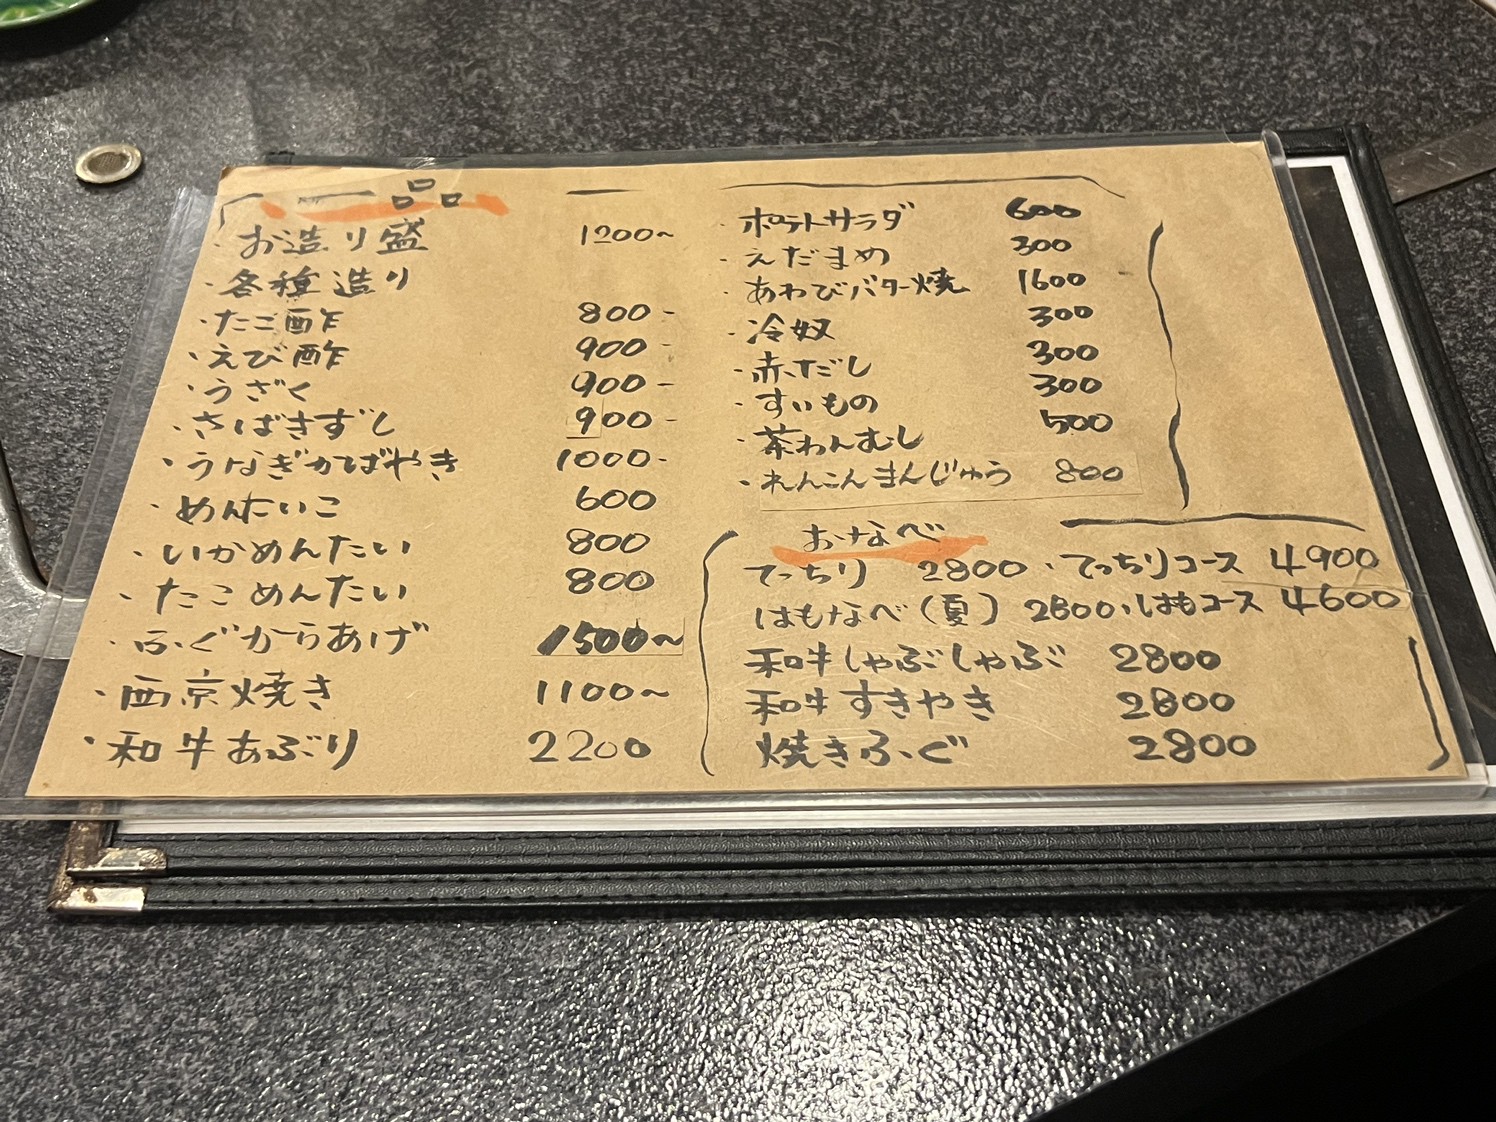 一品
・お造り盛 1200~
・各種造り
・たこ酢 800-
・えび酢 900-
・うざく 900-
・さばきずし 900-
・うなぎかばやき 1000-
・めんたいこ 600
・いかめんたい 800
・たこめんたい 800
・ふぐからあげ 1500~
・西京焼き 1100~
・和牛あぶり 2200
・ポテトサラダ 600
・えだまめ 300
・あわびバター焼 1600
・冷奴 300
・赤だし 300
・すいもの 300
・茶わんむし 500
・れんこんまんじゅう 800
おなべ
てっちり 2800・てっちりコース 4900
はもなべ(夏) 2800・はもコース 4600
和牛しゃぶしゃぶ 2800
和牛すきやき 2800
焼きふぐ 2800